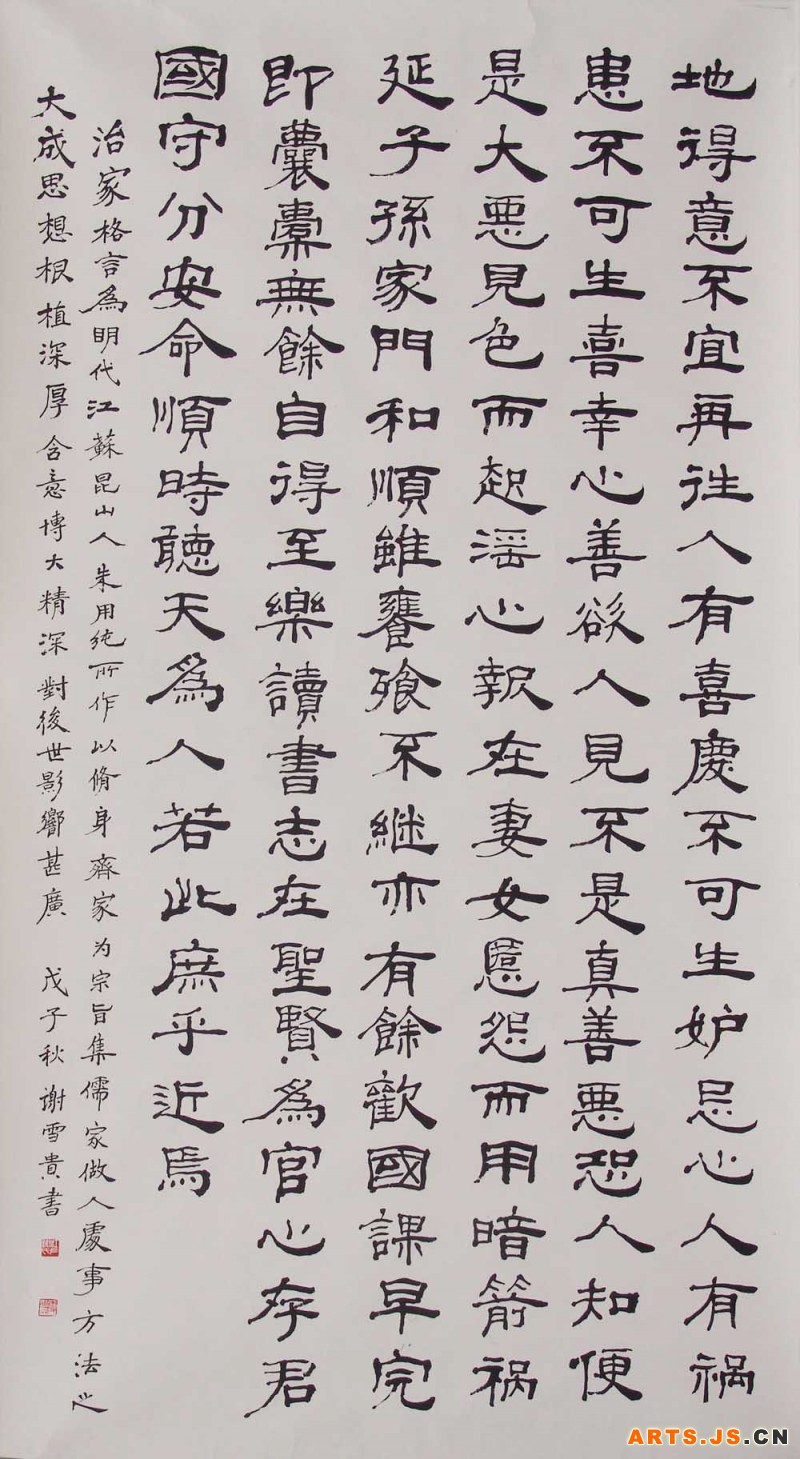 地得意不宜再往人有喜慶不可生妒忌心人有禍
患不可生喜幸心善欲人見不是真善悪恐人知便
是大悪見色而起淫心報在妻女慝怨而用暗箭禍
延子孫家門和順雖饔飧不継亦有餘歡國課早完
即囊橐無餘自得至樂讀書志在聖賢爲官心存君
國守分安命順時聽天爲人若此庶乎近焉
治家格言爲明代江蘇昆山人朱用純所作以脩身齊家为宗旨集儒家做人處事方法之
大成思想根植深厚含意博大精深對後世影響甚廣 戊子秋謝雪貴書
ARTS.JS.CN